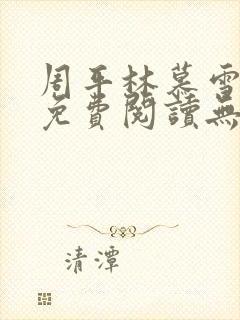 周平林慕雪
免費閱讀無
清潭